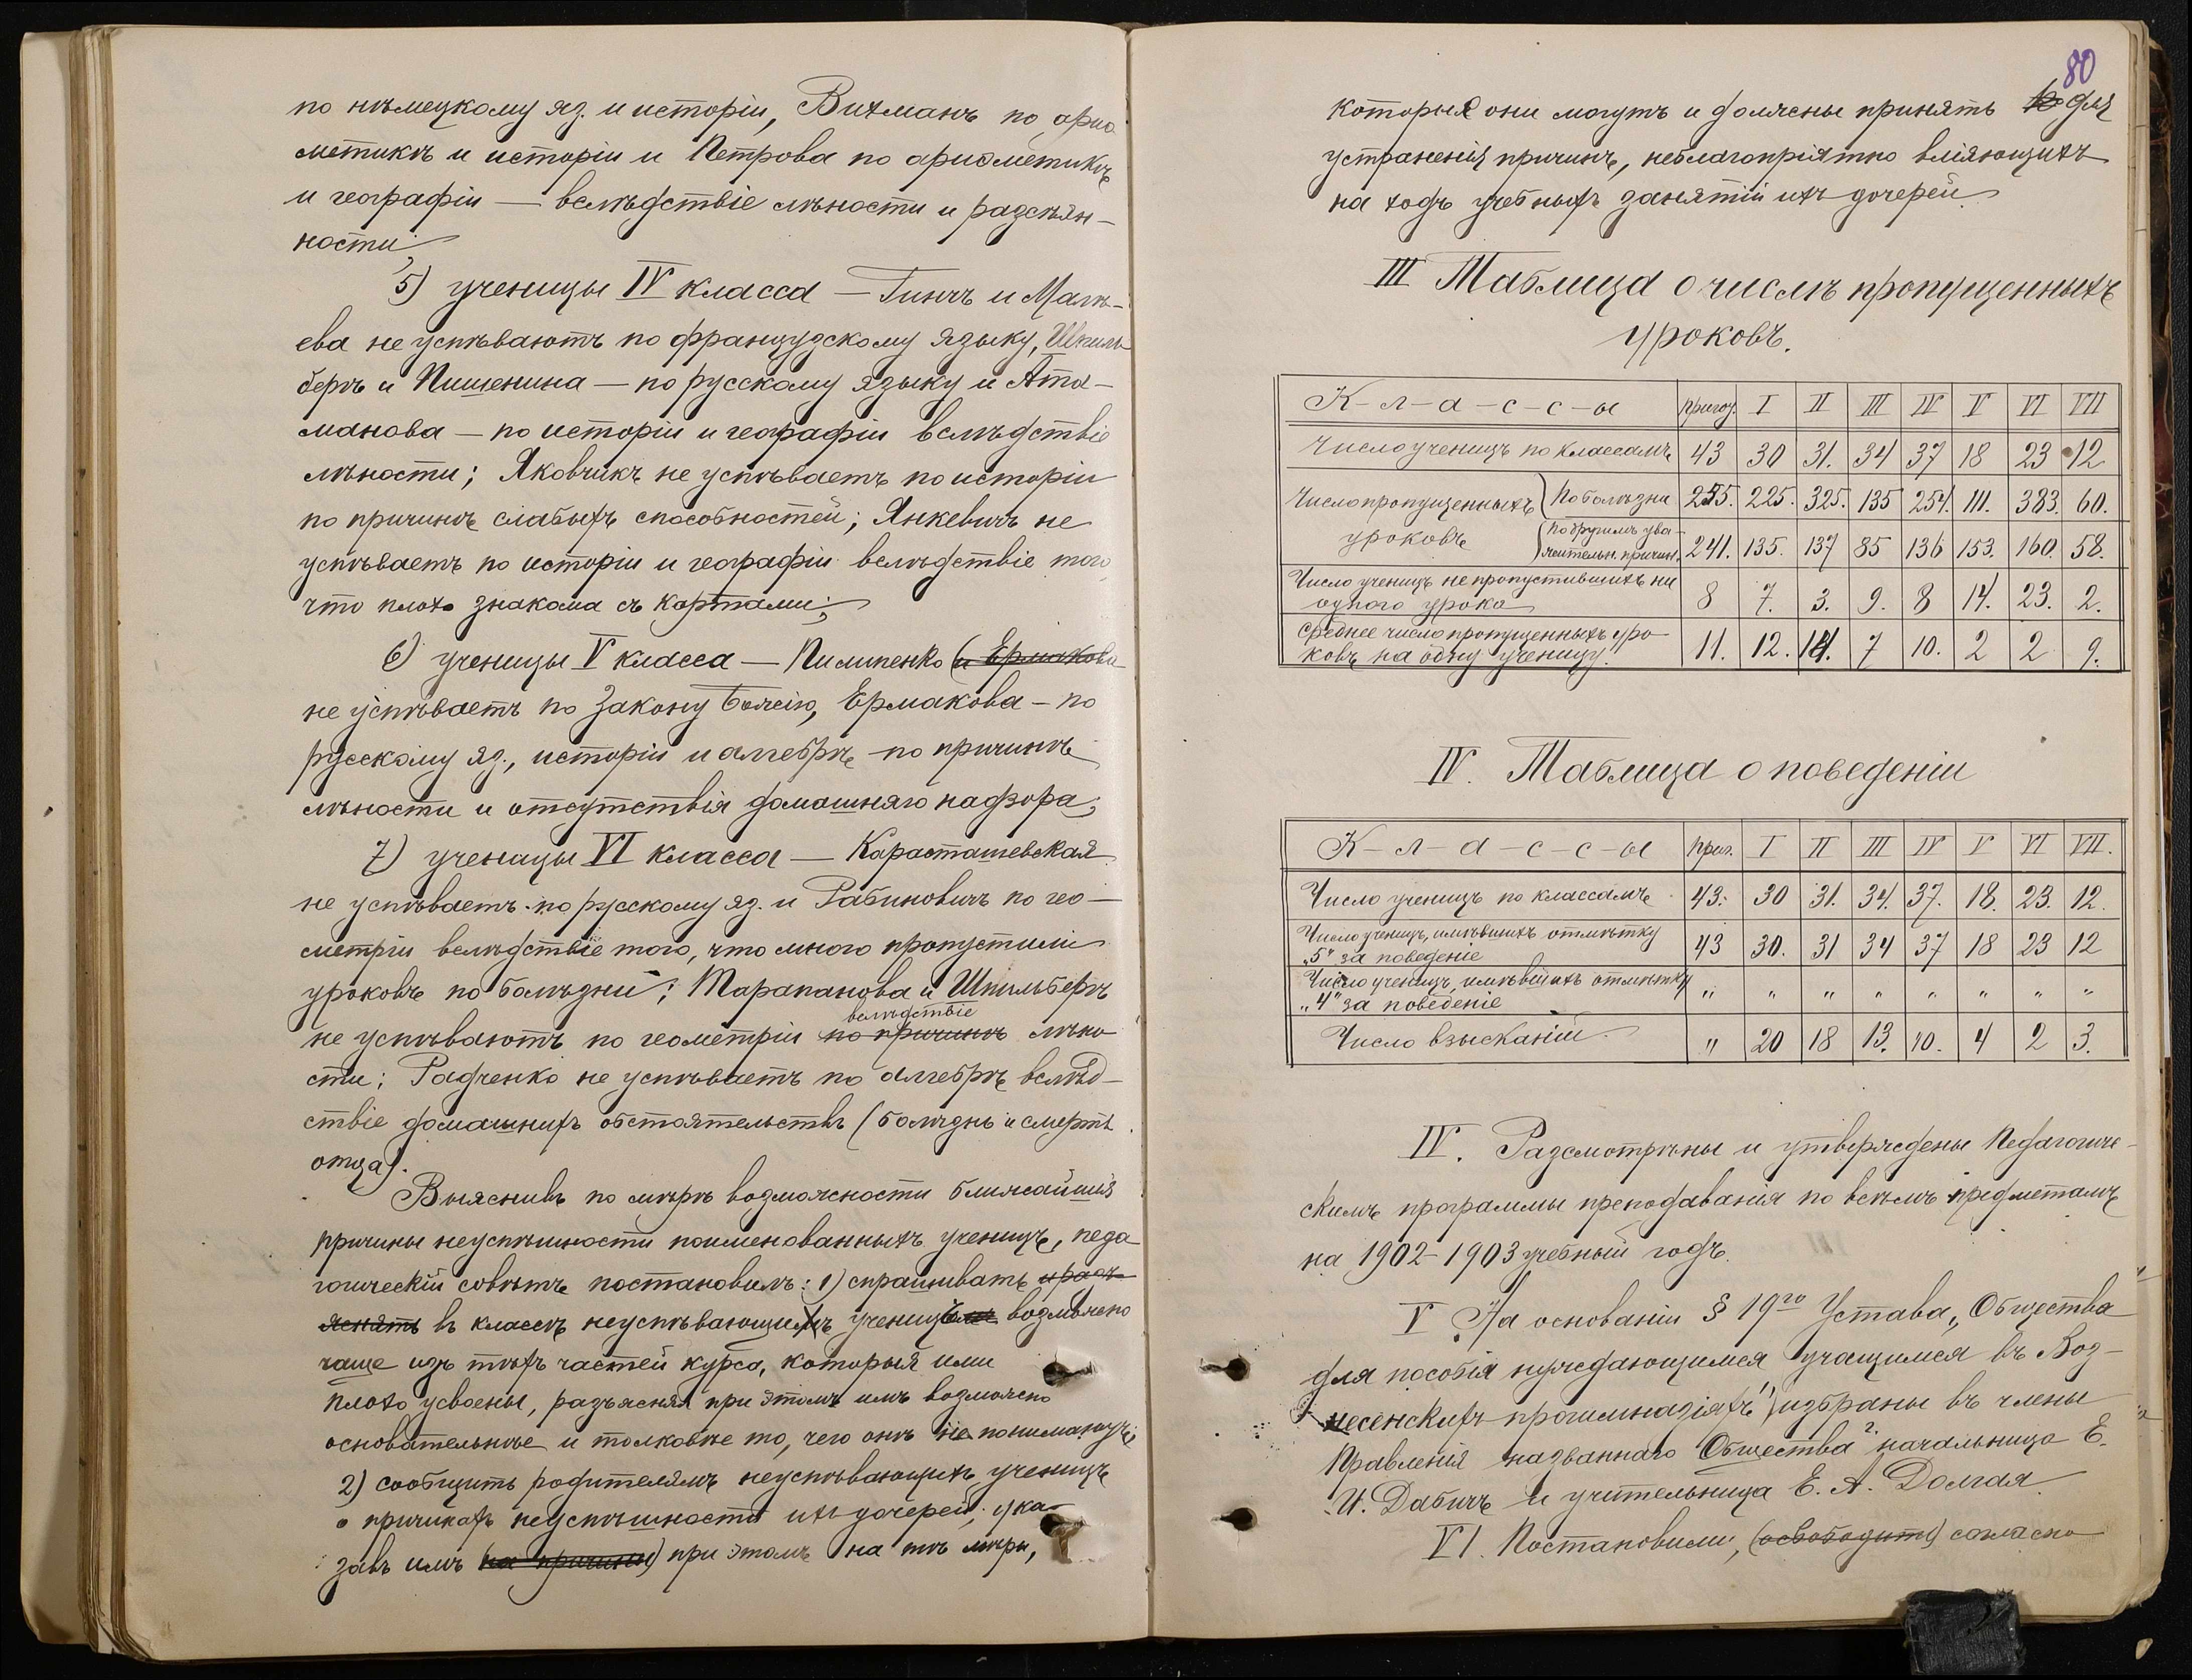 по нѣмецкому яз. и исторіи, Вихманъ по арио
метикѣ и исторіи и Петрова по ариѳметикѣ
и географіи — вслѣдствіе лѣности и разсѣян-
ности;
5) ученицы IV класса — Гинчъ и Мат-
ева не успѣваютъ по французскому языку, Шпиль
бергъ и Пишенина — по русскому языку и Ата-
манова — по исторіи и географіи вслѣдствіе
лѣности; Яковчикъ не успѣваетъ по исторіи
по причинѣ слабыхъ способностей; Янкевичъ не
успѣваетъ по исторіи и географіи вслѣдствіе того,
что плохо знакома съ картами;
6) ученицы V класса — Пилипенко (и Ермакова
не успѣваетъ по Закону Божію, Ермакова — по
русскому яз., исторіи и алгебрѣ по причинѣ
лѣности и отсутствія домашняго надзора;
7) ученицы VI класса — Карасташевская
не успѣваетъ по русскому яз. и Рабиновичъ по гео-
метріи вслѣдствіе того, что много пропустили
уроковъ по болѣзни; Тарапанова и Шпильбергъ
вслѣдствіе
не успѣваютъ по геометріи по причинѣ лѣно
сти; Радченко не успѣваетъ по алгебрѣ вслѣд-
ствіе домашнихъ обстоятельствъ (болѣзнь и смерть
отца).
Выяснивъ по мѣрѣ возможности ближайшія
причины неуспѣшности поименованныхъ ученицъ, педа
гогическій совѣтъ постановилъ: 1) спрашивать и разъ-
яснять въ классѣ неуспѣвающихъ ученицъ возможно
чаще изъ тѣхъ частей курса, которыя ими
плохо усвоены, разъясняя при этомъ имъ возможно
основательнѣе и толковѣе то, чего онѣ не понимаютъ;
2) сообщить родителямъ неуспѣвающихъ ученицъ
о причинахъ неуспѣшности ихъ дочерей, ука-
завъ имъ (на причины) при этомъ на тѣ мѣры,
80
которыя они могутъ и должны принять для
устраненія причинъ, неблагопріятно вліяющихъ
на ходъ учебныхъ занятій ихъ дочерей.
III Таблица о числѣ пропущенныхъ
уроковъ.
К-л-а-с-с-ы пригот. I II III IV V VI VII
Число ученицъ по классамъ 43 30 31. 34 37 18 23 12
Число пропущенныхъ По болѣзни 255. 225. 325. 135 254. 111. 383. 60.
уроковъ По другимъ ува-
жительн. причин. 241. 135. 137 85 136 153. 160. 58.
Число ученицъ не пропустившихъ ни
одного урока 8 7. 3. 9. 8 14. 23. 2.
Среднее число пропущенныхъ уро-
ковъ на одну ученицу. 11. 12. 14. 7 10. 2 2 9.
IV. Таблица о поведеніи
К-л-а-с-с-ы приг. I II III IV V VI VII.
Число ученицъ по классамъ 43. 30 31. 34. 37. 18. 23. 12.
Число ученицъ, имѣвшихъ отмѣтку
„5" за поведеніе 43 30. 31 34 37 18 23 12
Число ученицъ, имѣвшихъ отмѣтку
„4" за поведеніе " " " " " " " "
Число взысканій " 20 18 13. 10. 4 2 3.
IV. Разсмотрѣны и утверждены Педагогиче-
скимъ программы преподаванія по всѣмъ предметамъ
на 1902-1903 учебный годъ.
V На основаніи § 19го Устава „Общества
для пособія нуждающимся учащимся въ Воз-
несенскихъ прогимназіяхъ" избраны въ члены
Правленія названнаго Общества начальница Е.
И. Дабичъ и учительница Е. А. Долгая.
VI. Постановили, (освободить) согласно